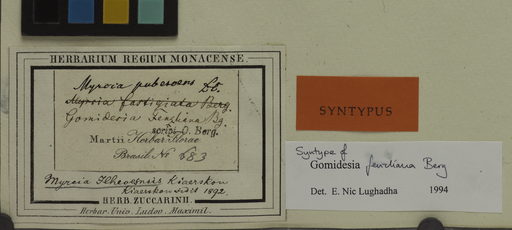 HERBARIUM REGIUM MONACENSE.
Myrcia pubescens DC.
Myrcia fastigiata Berg.
Gomidesia Fenzliana Bg.
scrips. O. Berg.
Martii Herbar. Florae
Brasil. No 683
Myrcia Ilheosensis Kiaerskou
Kiaerskou det. 1892.
HERB. ZUCCARINII.
Herbar. Univ. Ludov. Maximil.
SYNTYPUS
Syntype of
Gomidesia fenzliana Berg
Det. E. Nic Lughadha 1994